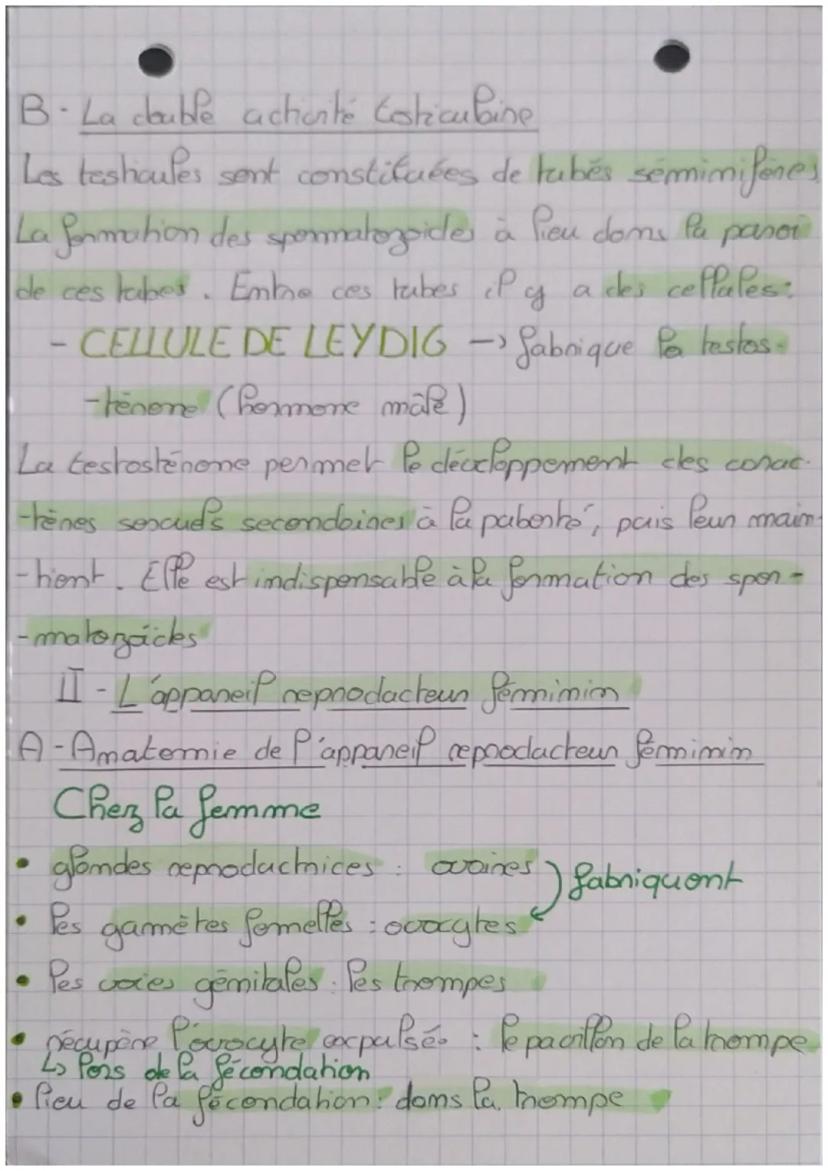 B - La double activité testiculaire
Les testicules sont constituées de tubes sémminifères
La formation des spermatozoïdes à lieu dans la paroi
de ces tubes. Entre ces tubes il y a des cellules:
- CELLULE DE LEYDIG -> fabrique la testos-
-térone (hormone mâle)
La testostérone permet le développement des carac-
-tères sexuels secondaires à la puberté, puis leur main-
-tient. Elle est indispensable à la formation des sper-
-matozoïdes
II - L'appareil reproducteur fémminin
A - Anatomie de l'appareil reproducteur fémminin
Chez la femme
• glandes reproductrices : ovaires
fabriquent
• les gamètes femelles : ovocytes
• les voies génitales : les trompes
• récupère l'ovocyte expulsée : le pavillon de la trompe
↳ lors de la fécondation
• lieu de la fécondation : dans la trompe